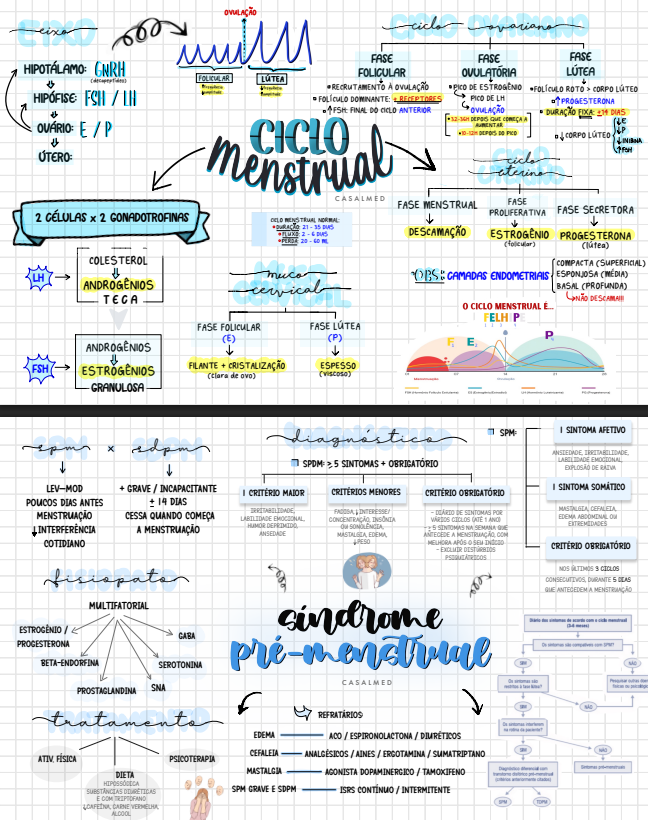 eixo
HIPOTÁLAMO: GnRH
(decapeptídeo)
HIPÓFISE: FSH / LH
OVÁRIO: E / P
ÚTERO:
OVULAÇÃO
FOLICULAR
LÚTEA
ciclo ovariano
FASE FOLICULAR
RECRUTAMENTO À OVULAÇÃO
FOLÍCULO DOMINANTE: + RECEPTORES
↑FSH: FINAL DO CICLO ANTERIOR
FASE OVULATÓRIA
PICO DE ESTROGÊNIO
PICO DE LH
OVULAÇÃO
32-36H DEPOIS QUE COMEÇA A AUMENTAR
10-12H DEPOIS DO PICO
FASE LÚTEA
FOLÍCULO ROTO > CORPO LÚTEO
↑PROGESTERONA
DURAÇÃO FIXA: ±14 DIAS
↓CORPO LÚTEO
↓E
↓P
↓INIBINA
↑FSH
CICLO
menstrual
CASALMED
2 CÉLULAS x 2 GONADOTROFINAS
LH
COLESTEROL
ANDROGÊNIOS
TECA
FSH
ANDROGÊNIOS
ESTROGÊNIOS
GRANULOSA
CICLO MENSTRUAL NORMAL:
DURAÇÃO: 21 - 35 DIAS
FLUXO: 2 - 6 DIAS
PERDA: 20 - 60 ML
muco
cervical
FASE FOLICULAR
(E)
FILANTE + CRISTALIZAÇÃO
(clara de ovo)
FASE LÚTEA
(P)
ESPESSO
(viscoso)
ciclo
uterino
FASE MENSTRUAL
DESCAMAÇÃO
FASE PROLIFERATIVA
ESTROGÊNIO
(folicular)
FASE SECRETORA
PROGESTERONA
(lútea)
OBS: CAMADAS ENDOMETRIAIS
COMPACTA (SUPERFICIAL)
ESPONJOSA (MÉDIA)
BASAL (PROFUNDA)
NÃO DESCAMA!!!
O CICLO MENSTRUAL É...
FELHP
F E P
spm x sdpm
LEV-MOD
POUCOS DIAS ANTES
MENSTRUAÇÃO
↓INTERFERÊNCIA
COTIDIANO
+ GRAVE / INCAPACITANTE
± 14 DIAS
CESSA QUANDO COMEÇA
A MENSTRUAÇÃO
diagnóstico
SPDM: ≥ 5 SINTOMAS + OBRIGATÓRIO
1 CRITÉRIO MAIOR
IRRITABILIDADE,
LABILIDADE EMOCIONAL,
HUMOR DEPRIMIDO,
ANSIEDADE
CRITÉRIOS MENORES
FADIGA, ↓INTERESSE/
CONCENTRAÇÃO, INSÔNIA
OU SONOLÊNCIA,
MASTALGIA, EDEMA,
↓PESO
CRITÉRIO OBRIGATÓRIO
- DIÁRIO DE SINTOMAS POR
VÁRIOS CICLOS (ATÉ 1 ANO)
- ≥ 5 SINTOMAS NA SEMANA QUE
ANTECEDE A MENSTRUAÇÃO, COM
MELHORA APÓS O SEU INÍCIO
- EXCLUIR DISTÚRBIOS
PSIQUIÁTRICOS
SPM:
1 SINTOMA AFETIVO
ANSIEDADE, IRRITABILIDADE,
LABILIDADE EMOCIONAL,
EXPLOSÃO DE RAIVA
1 SINTOMA SOMÁTICO
MASTALGIA, CEFALEIA,
EDEMA ABDOMINAL OU
EXTREMIDADES
CRITÉRIO OBRIGATÓRIO
NOS ÚLTIMOS 3 CICLOS
CONSECUTIVOS, DURANTE 5 DIAS
QUE ANTECEDEM A MENSTRUAÇÃO
fisiopato
MULTIFATORIAL
ESTROGÊNIO /
PROGESTERONA
BETA-ENDORFINA
PROSTAGLANDINA
SNA
SEROTONINA
GABA
síndrome
pré-menstrual
CASALMED
tratamento
ATIV. FÍSICA
DIETA
HIPOSSÓDICA
SUBSTÂNCIAS DIURÉTICAS
E COM TRIPTOFANO
↓CAFEÍNA, CARNE VERMELHA,
ÁLCOOL
PSICOTERAPIA
REFRATÁRIOS:
EDEMA ACO / ESPIRONOLACTONA / DIURÉTICOS
CEFALEIA ANALGÉSICOS / AINES / ERGOTAMINA / SUMATRIPTANO
MASTALGIA AGONISTA DOPAMINERGICO / TAMOXIFENO
SPM GRAVE E SDPM ISRS CONTÍNUO / INTERMITENTE
Diário dos sintomas de acordo com o ciclo menstrual
(3-6 meses)
Os sintomas são compatíveis com SPM?
SIM
NÃO
Os sintomas são
restritos à fase lútea?
Pesquisar outras
SIM
NÃO
Os sintomas interferem
na rotina da paciente?
SIM
NÃO
Diagnóstico diferencial com
transtorno disfórico pré-menstrual
(critérios anteriormente citados)
Sintomas pré-menstruais
SPM
TDPM